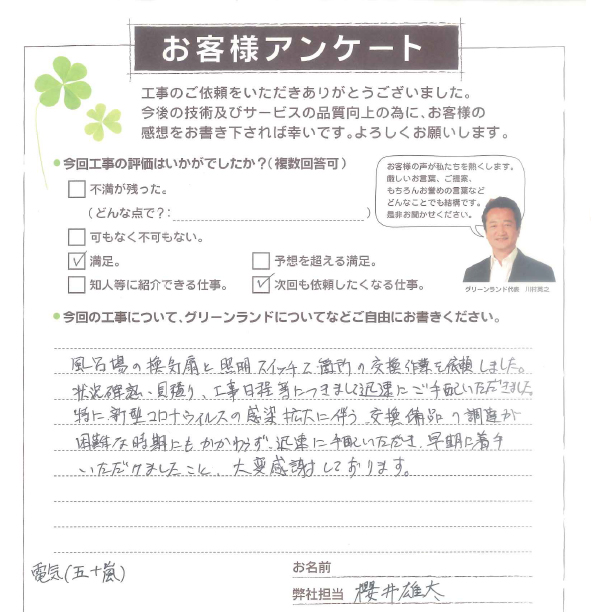 お客様アンケート
工事のご依頼をいただきありがとうございました。
今後の技術及びサービスの品質向上の為に、お客様の
感想をお書き下されば幸いです。よろしくお願いします。
今回工事の評価はいかがでしたか?(複数回答可)
不満が残った。
(どんな点で?:            )
可もなく不可もない。
満足。
予想を超える満足。
知人等に紹介できる仕事。
次回も依頼したくなる仕事。
お客様の声が私たちを熱くします。
厳しいお言葉、ご提案、
もちろんお誉めの言葉など
どんなことでも結構です。
是非お聞かせください。
グリーンランド代表
今回の工事について、グリーンランドについてなどご自由にお書きください。
風呂場の換気扇と照明スイッチ2箇所の交換作業を依頼しました。
状況確認、見積り、工事日程等につきまして迅速にご手配いただきました。
特に新型コロナウィルスの感染拡大に伴う、交換備品の調達が
困難な時期にもかかわらず、迅速に手配いただき、早期に着手
いただけましたこと、大変感謝しております。
電気(五十嵐)
お名前
弊社担当 櫻井雄太